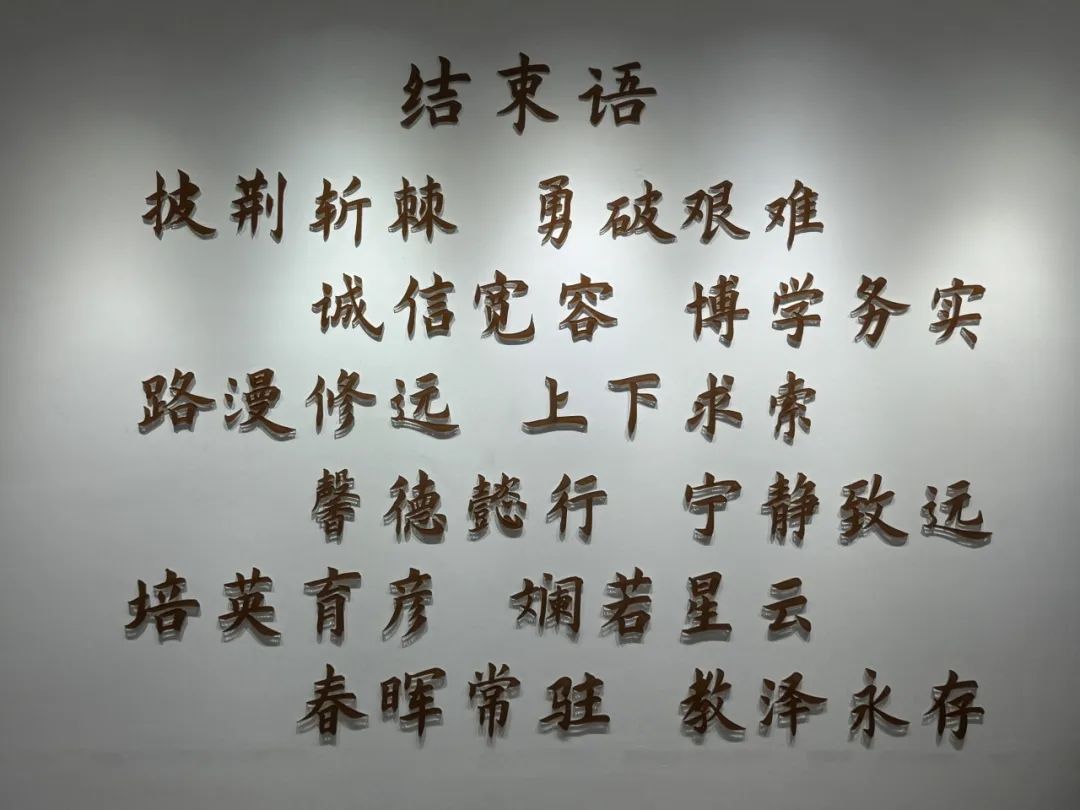 结束语
披荆斩棘 勇破艰难
诚信宽容 博学务实
路漫修远 上下求索
馨德懿行 宁静致远
培英育彦 斓若星云
春晖常驻 教泽永存